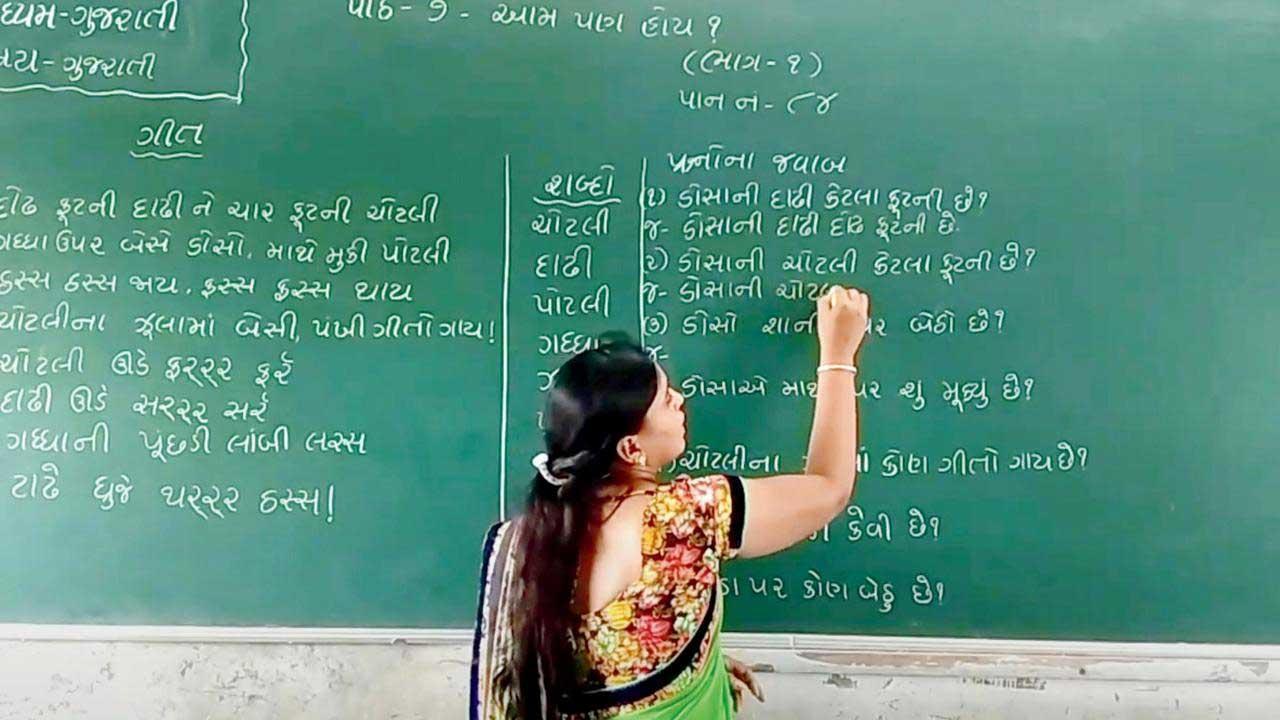 ધ્યમ-ગુજરાતી
ષય-ગુજરાતી
પાઠ - ૭ - આમ પણ હોય ?
(ભાગ - ૧)
પાન નં - ૮૪
ગીત
દોઢ ફૂટની દાઢી ને ચાર ફૂટની ચોટલી
ગધ્ધા ઉપર બેસે ડોસો, માથે મુકી પોટલી
ઠસ્સ ઠસ્સ જાય, ફસ્સ ફસ્સ થાય
ચોટલીના ઝૂલામાં બેસી, પંખી ગીતો ગાય!
ચોટલી ઊડે ફરરર ફર્ર
દાઢી ઊડે સરરર સર્ર
ગધ્ધાની પૂંછડી લાંબી લસ્સ
ટાઢે ધ્રુજે થરરર ઠસ્સ!
શબ્દો
ચોટલી
દાઢી
પોટલી
ગધ્ધા
પ્રશ્નોના જવાબ
(૧) ડોસાની દાઢી કેટલા ફૂટની છે?
જ- ડોસાની દાઢી દોઢ ફૂટની છે.
(૨) ડોસાની ચોટલી કેટલા ફૂટની છે?
જ- ડોસાની ચોટલ
(૩) ડોસો શાની પર બેઠો છે?
જ-
ડોસાએ માથ પર શુ મૂક્યુ છે?
ચોટલીના કોણ ગીતો ગાય છે?
કેવી છે?
પર કોણ બેઠુ છે?